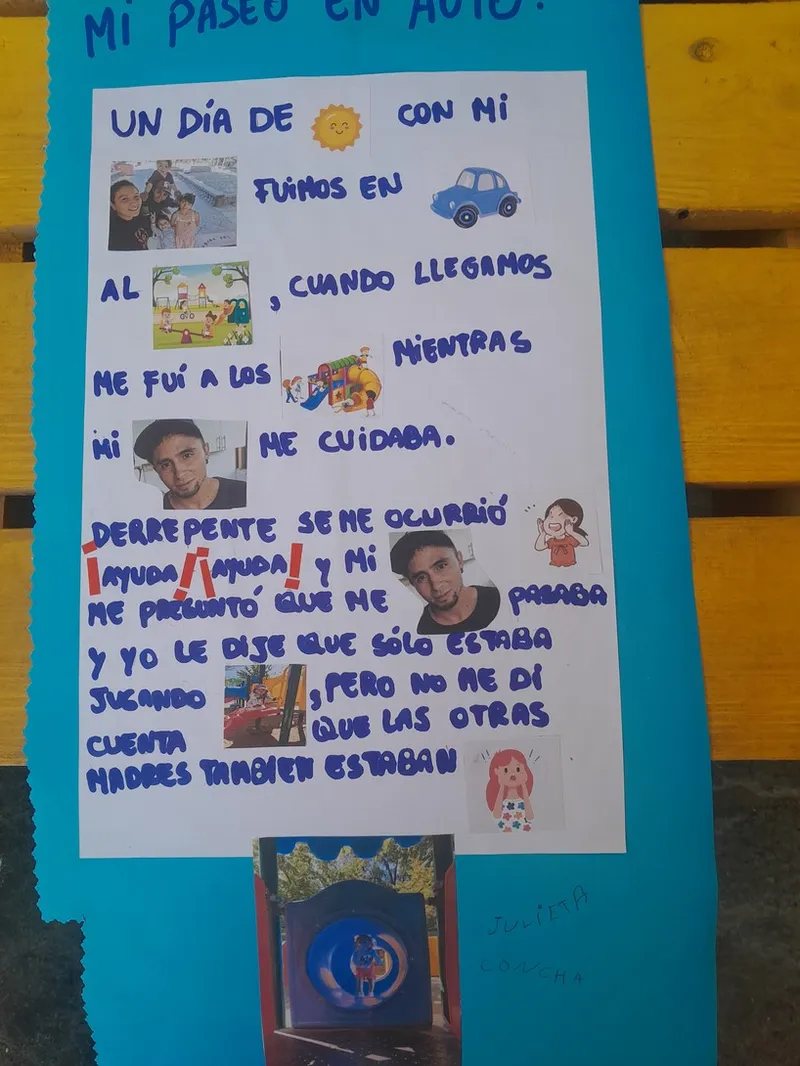 MI PASEO EN AUTO.
UN DÍA DE CON MI
FUIMOS EN
AL , CUANDO LLEGAMOS
ME FUÍ A LOS MIENTRAS
MI ME CUIDABA.
DERREPENTE SE ME OCURRIÓ
¡AYUDA! ¡AYUDA! Y MI
ME PREGUNTÓ QUE ME PASABA
Y YO LE DIJE QUE SÓLO ESTABA
JUGANDO , PERO NO ME DI
CUENTA QUE LAS OTRAS
MADRES TAMBIEN ESTABAN
JULIETA
CONCHA